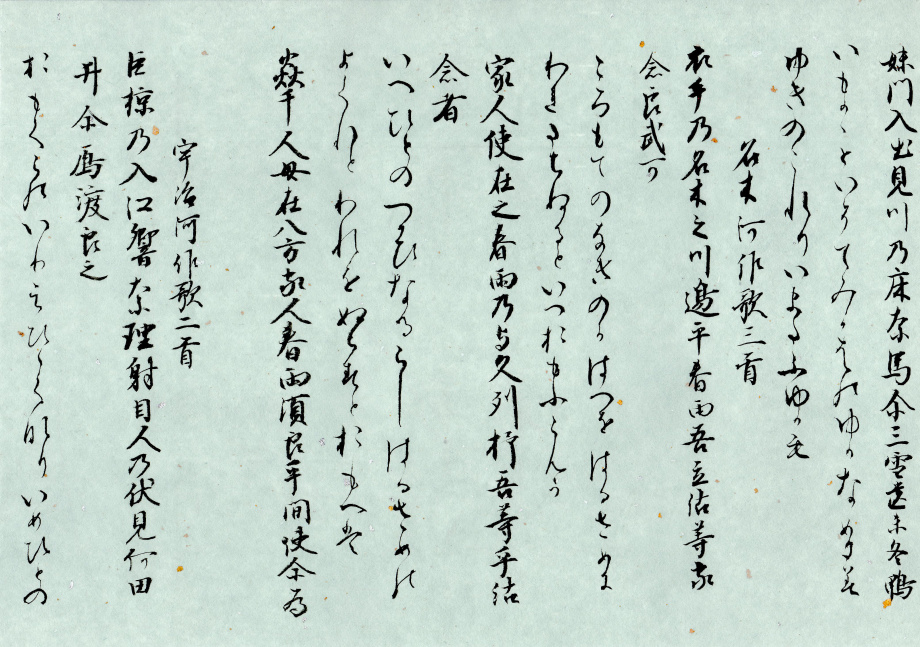 妹門入出見川乃床奈馬尓三雪遣未冬鴨
いもかゝといりてみかはのゆかなめにみ
ゆきのこれりいまたふゆかも
名木河作歌三首
衣手乃名木之川邊乎春雨吾立沾等家
念良武可
ころもてのなきのかはへをはるさめに
われたちぬるといへおもふらんか
家人使在之春雨乃与久列杼吾等乎沾
念者
いへひとのつかひなるらしはるさめの
よくれとわれをぬらすとおもへは
焱干人母在八方家人春雨須良乎間使尓為
宇治河作歌二首
巨椋乃入江響奈理射目人乃伏見何田
井尓鴈渡良之
おもくらのいりえひゝくなりいめひとの